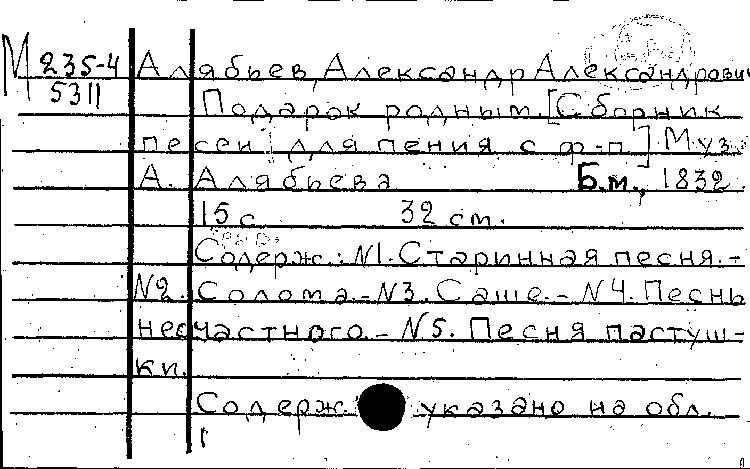 М 235-4 Алябьев, Александр Александрович
5311 Подарок родным. [Сборник
песен для пения с ф-п.] Муз.
А. Алябьева Б.м., 1832.
15 с. 32 см.
Содерж.: №1. Старинная песня. -
№2. Солома. - №3. Саше. - №4. Песнь
несчастного. - №5. Песня пастуш-
ки.
Содерж. указано на обл.